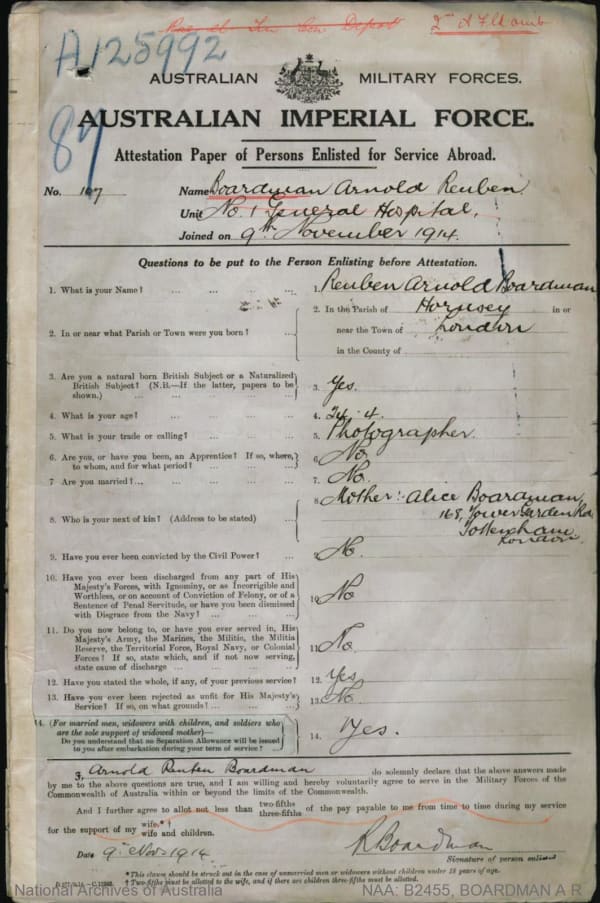 2nd A Fld amb
A125992
87
AUSTRALIAN MILITARY FORCES.
AUSTRALIAN IMPERIAL FORCE.
Attestation Paper of Persons Enlisted for Service Abroad.
No. 107 Name Boardman Arnold Reuben
Unit No. 1 General Hospital,
Joined on 9th November 1914.
Questions to be put to the Person Enlisting before Attestation.
1. What is your Name? ... ... ... ... 1. Reuben Arnold Boardman
2. In or near what Parish or Town were you born? ... 2. In the Parish of Hornsey in or
near the Town of London
in the County of
3. Are you a natural born British Subject or a Naturalized
British Subject? (N.B.—If the latter, papers to be
shown.) ... ... ... ... 3. Yes.
4. What is your age? ... ... ... ... 4. 24 . 4.
5. What is your trade or calling? ... ... ... 5. Photographer.
6. Are you, or have you been, an Apprentice? If so, where,
to whom, and for what period? ... ... ... 6. No
7 Are you married? ... ... ... ... 7. No.
8. Who is your next of kin? (Address to be stated) ... 8. Mother: Alice Boardman,
168, Tower Garden Rd
Tottenham
London.
9. Have you ever been convicted by the Civil Power? ... 9. No.
10. Have you ever been discharged from any part of His
Majesty's Forces, with Ignominy, or as Incorrigible and
Worthless, or on account of Conviction of Felony, or of a
Sentence of Penal Servitude, or have you been dismissed
with Disgrace from the Navy? ... ... ... 10. No
11. Do you now belong to, or have you ever served in, His
Majesty's Army, the Marines, the Militia, the Militia
Reserve, the Territorial Force, Royal Navy, or Colonial
Forces? If so, state which, and if not now serving,
state cause of discharge ... ... ... 11. No.
12. Have you stated the whole, if any, of your previous service? 12. Yes
13. Have you ever been rejected as unfit for His Majesty's
Service? If so, on what grounds? ... ... 13. No.
14. (For married men, widowers with children, and soldiers who
are the sole support of widowed mother)—
Do you understand that no Separation Allowance will be issued
to you after embarkation during your term of service? 14. Yes.
I, Arnold Reuben Boardman do solemnly declare that the above answers made
by me to the above questions are true, and I am willing and hereby voluntarily agree to serve in the Military Forces of the
Commonwealth of Australia within or beyond the limits of the Commonwealth.
And I further agree to allot not less than two-fifths three-fifths of the pay payable to me from time to time during my service
for the support of my wife.*† wife and children.
Date 9th Nov 1914. R Boardman
Signature of person enlisted
*This clause should be struck out in the case of unmarried men or widowers without children under 18 years of age.
†Two-fifths must be allotted to the wife, and if there are children three-fifths must be allotted.
National Archives of Australia NAA: B2455, BOARDMAN A R